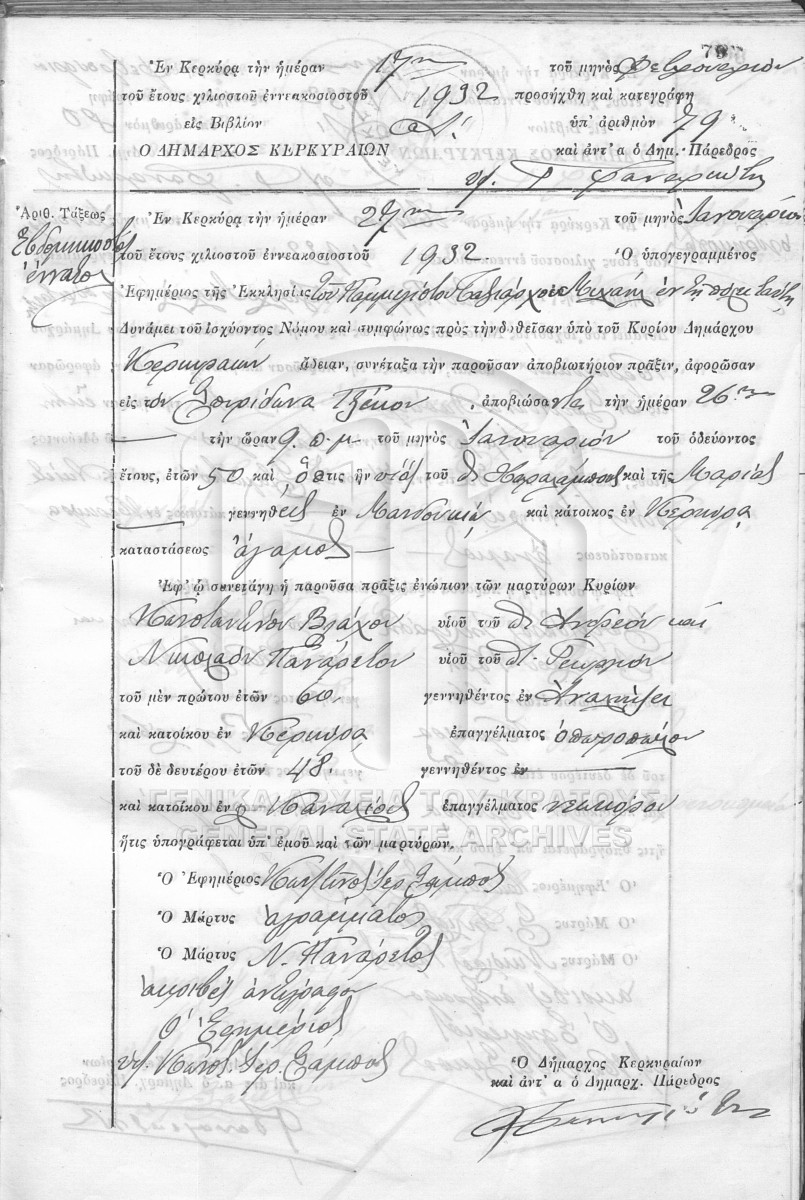 79
Ἐν Κερκύρᾳ τὴν ἡμέραν 17ην τοῦ μηνὸς Φεβρουαρίου
τοῦ ἔτους χιλιοστοῦ ἐννεακοσιοστοῦ 1932 προσήχθη καὶ κατεγράφη
εἰς Βιβλίον Α! ὑπ' ἀριθμὸν 79
Ο ΔΗΜΑΡΧΟΣ ΚΕΡΚΥΡΑΙΩΝ καὶ ἀντ' α ὁ Δημ. Πάρεδρος
υφ.
Ἀριθ. Τάξεως
Ἑβδομηκοστὸς
ἔννατος
Ἐν Κερκύρᾳ τὴν ἡμέραν 27ην τοῦ μηνὸς Ἰανουαρίου
τοῦ ἔτους χιλιοστοῦ ἐννεακοσιοστοῦ 1932 Ὁ ὑπογεγραμμένος
Ἐφημέριος τῆς Ἐκκλησίας τοῦ Παμμεγίστου Ταξιάρχου Μιχαὴλ ἐν τῇ πόλει ταύτῃ
Δυνάμει τοῦ ἰσχύοντος Νόμου καὶ συμφώνως πρὸς τὴν δοθεῖσαν ὑπὸ τοῦ Κυρίου Δημάρχου
Κερκυραίων ἄδειαν, συνέταξα τὴν παροῦσαν ἀποβιωτήριον πρᾶξιν, ἀφορῶσαν
εἰς τὸν Σπυρίδωνα Τζέκον ἀποβιώσαντα τὴν ἡμέραν 26ην
τὴν ὥραν 9 π.μ. τοῦ μηνὸς Ἰανουαρίου τοῦ ὁδεύοντος
ἔτους, ἐτῶν 50 καὶ, ὅστις ἦν υἱὸς τοῦ Χαραλάμπους καὶ τῆς Μαρίας
γεννηθεὶς ἐν Μανδουκίῳ καὶ κάτοικος ἐν Κερκύρᾳ
καταστάσεως ἄγαμος
Ἐφ' ᾧ συνετάγη ἡ παροῦσα πρᾶξις ἐνώπιον τῶν μαρτύρων Κυρίων
Κωνσταντίνου Βλάχου υἱοῦ τοῦ Ἀνδρέου καὶ
Νικολάου Πανάρετου υἱοῦ τοῦ Γεωργίου
τοῦ μὲν πρώτου ἐτῶν 60 γεννηθέντος ἐν
καὶ κατοίκου ἐν Κερκύρᾳ ἐπαγγέλματος ὀπωροπώλου
τοῦ δὲ δευτέρου ἐτῶν 48 γεννηθέντος ἐν
καὶ κατοίκου ἐν ἐπαγγέλματος νεωκόρου
ΓΕΝΙΚΑ ΑΡΧΕΙΑ ΤΟΥ ΚΡΑΤΟΥΣ
GENERAL STATE ARCHIVES
ἥτις ὑπογράφεται ὑπ' ἐμοῦ καὶ τῶν μαρτύρων.
Ὁ Ἐφημέριος Κων/τῖνος Ἱερ. Σάμπος
Ὁ Μάρτυς ἀγράμματος
Ὁ Μάρτυς Ν. Πανάρετος
ἀκριβὲς ἀντίγραφον
Ὁ Ἐφημέριος
υφ. Κωνστ. Ἱερ. Σάμπος
Ὁ Δήμαρχος Κερκυραίων
καὶ ἀντ' α ὁ Δημαρχ. Πάρεδρος